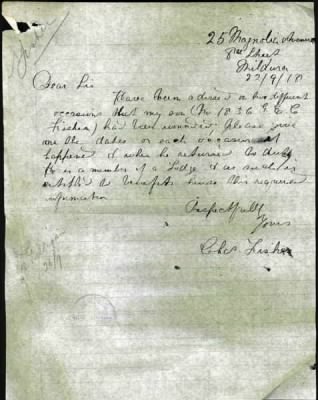 25 Magnolia Avenue
8th Street
Mildura
22/9/18
Dear Sir
I have been advised on two different
occasions that my son (No 1876 G E C
Fischer) has been wounded, Please give
me the dates on each occasion it
happened & when he returned to duty
he is a member of a Lodge & as such is
entitled to benefits hence this required
information
Respectfully
Yours
Fischer